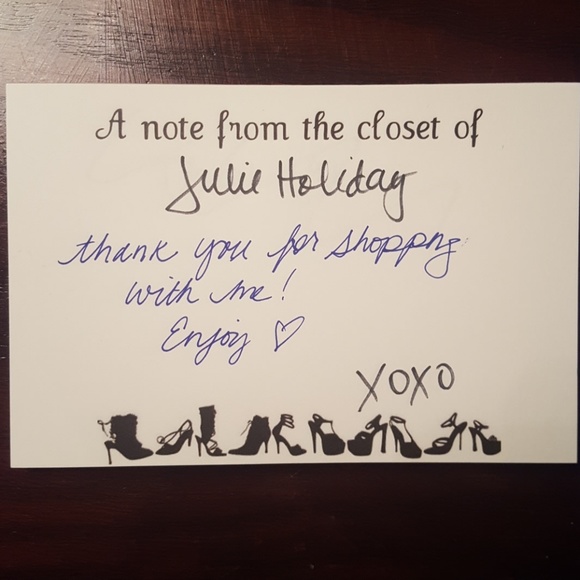 A note from the closet of
Julie Holiday
thank you for shoppng
with me!
Enjoy ♡
XOXO